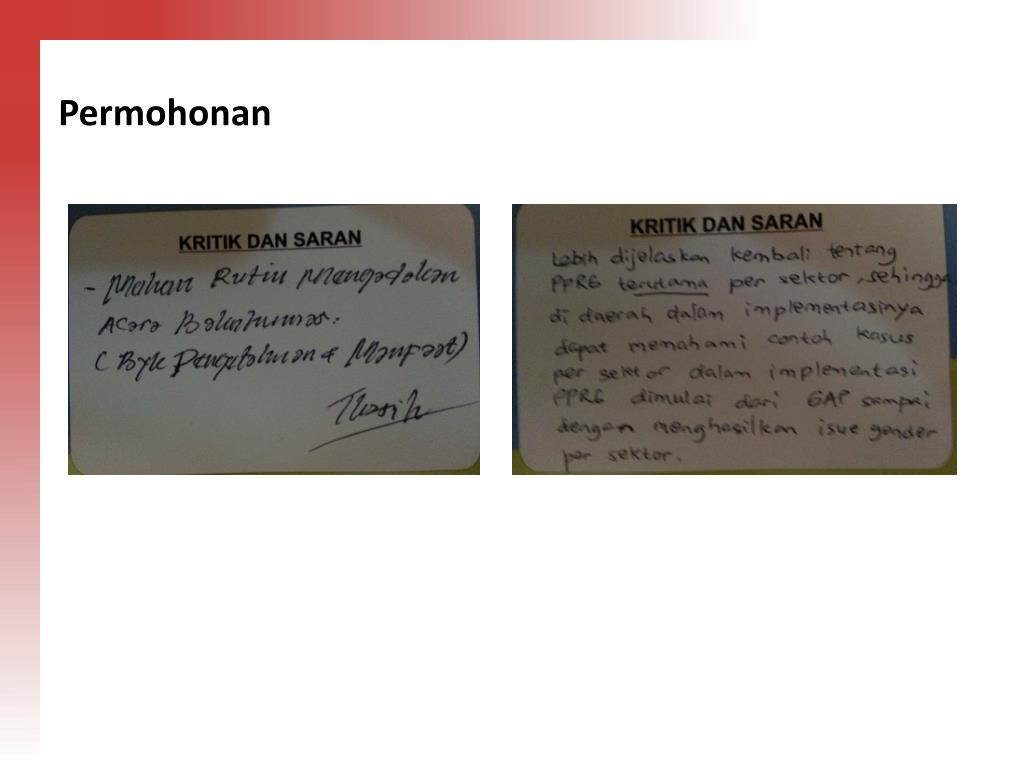 Permohonan
KRITIK DAN SARAN
- Mohon Rutin Mengadakan
Acara
( Byk Pengetahuan & Manfaat)
KRITIK DAN SARAN
Lebih dijelaskan kembali tentang
PPRG terutama per sektor, sehingga
di daerah dalam implementasinya
dapat memahami contoh kasus
per sektor dalam implementasi
PPRG dimulai dari GAP sampai
dengan menghasilkan isue gender
per sektor.